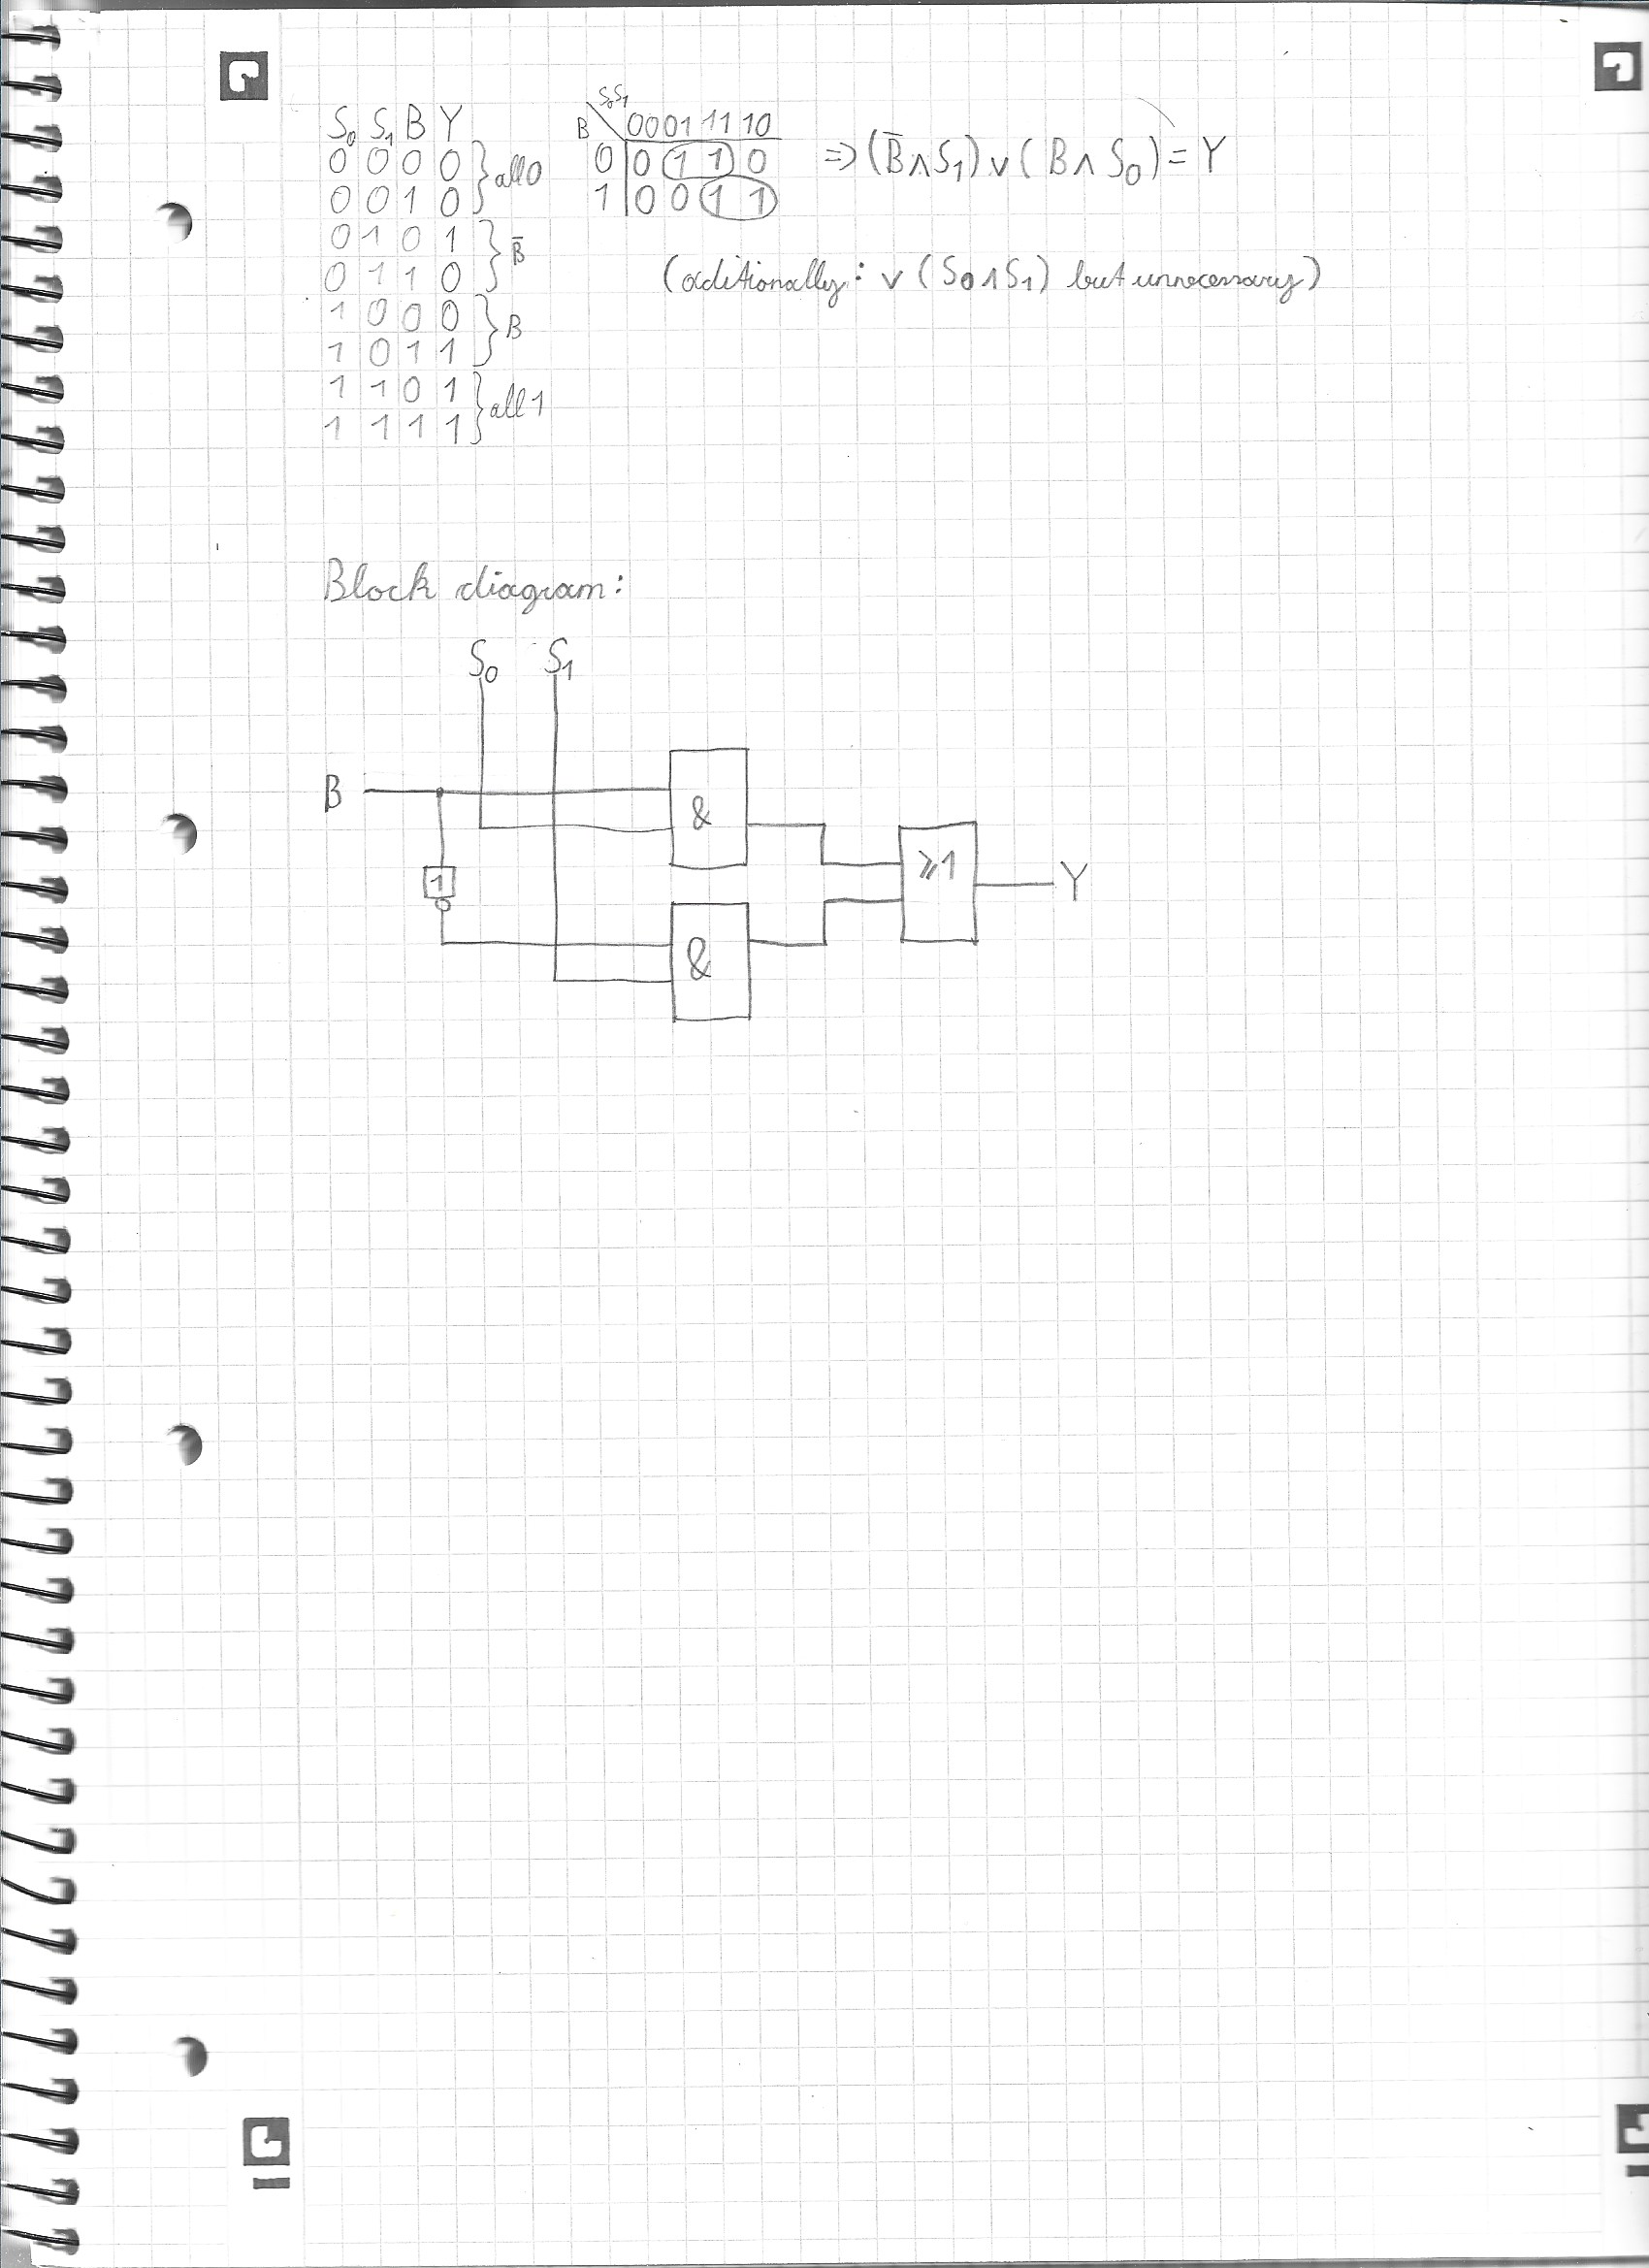 S₀ S₁ B Y
0 0 0 0 } all 0
0 0 1 0
0 1 0 1 } B̅
0 1 1 0
1 0 0 0 } B
1 0 1 1
1 1 0 1 } all 1
1 1 1 1
S₀S₁
B 00 01 11 10
0 0 1 1 0
1 0 0 1 1
⇒ (B̅ ∧ S₁) ∨ (B ∧ S₀) = Y
(aditionally: ∨ (S₀ ∧ S₁) but unnecessary)
Block diagram:
S₀ S₁
B
&
1
≥1 Y
&